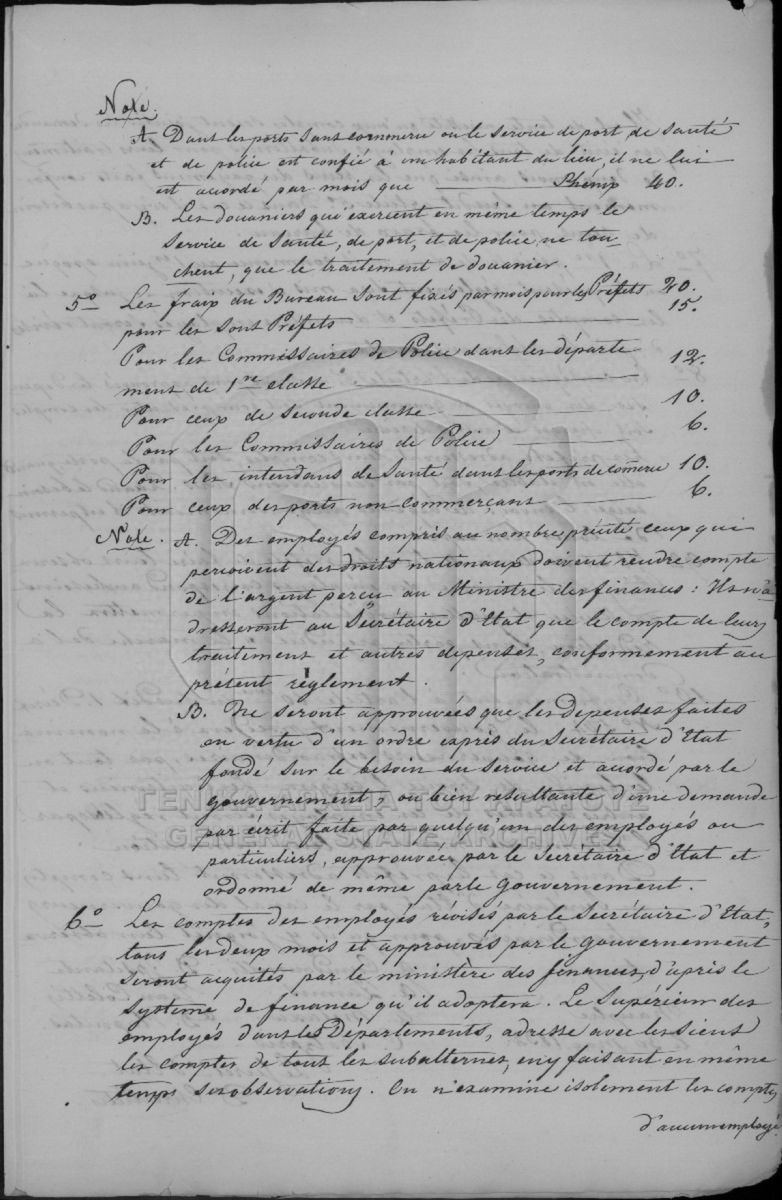 Note.
A. Dans les ports sans commerce ou le service de port de santé
et de police est confié à un habitant du lieu, il ne lui
est acordé par mois que Phénix 40.
B. Les douaniers qui éxercent en même temps le
service de santé, de port, et de police, ne tou-
chent, que le traitement de douanier.
5º Les fraix du Bureau sont fixés par mois pour les Préfets 20.
pour les sous Préfets 15.
Pour les Commissaires de Police dans les départe
mens de 1re classe 12.
Pour ceux de seconde classe 10.
Pour les Commissaires de Police 6.
Pour les intendans de Santé dans les ports de comerce 10.
Pour ceux des ports non commerçans 6.
Note. A. Des employés compris au nombre précité ceux qui
percoivent des droits nationaux doivent rendre compte
de l'argent perçu au Ministre des finances: Ils n'a
dresseront au Secrétaire d'Etat que le compte de leurs
traitemens et autres depenses, conformement au
présent règlement.
B. Ne seront approuvées que les depenses faites
en vertu d'un ordre exprès du Secrétaire d'Etat
fondé sur le besoin du service et acordé par le
gouvernement, ou bien resultante d'une demande
par écrit faite par quelqu'un des employés ou
particuliers, approuvée par le Secrétaire d'Etat et
ordonné de même par le gouvernement.
6º Les comptes des employés révisés par le Secrétaire d'Etat,
tous les deux mois et approuvés par le gouvernement
seront acquités par le ministère des finances, d'après le
système de finance qu'il adoptera. Le Supérieur des
employés dans les Départemens, adresse avec les siens
les comptes de tous les subalternes, en y faisant en même
temps ses observations. On n'examine isolement les comptes
d'aucun employé
ΓΕΝΙΚΑ ΑΡΧΕΙΑ ΤΟΥ ΚΡΑΤΟΥΣ
GENERAL STATE ARCHIVES